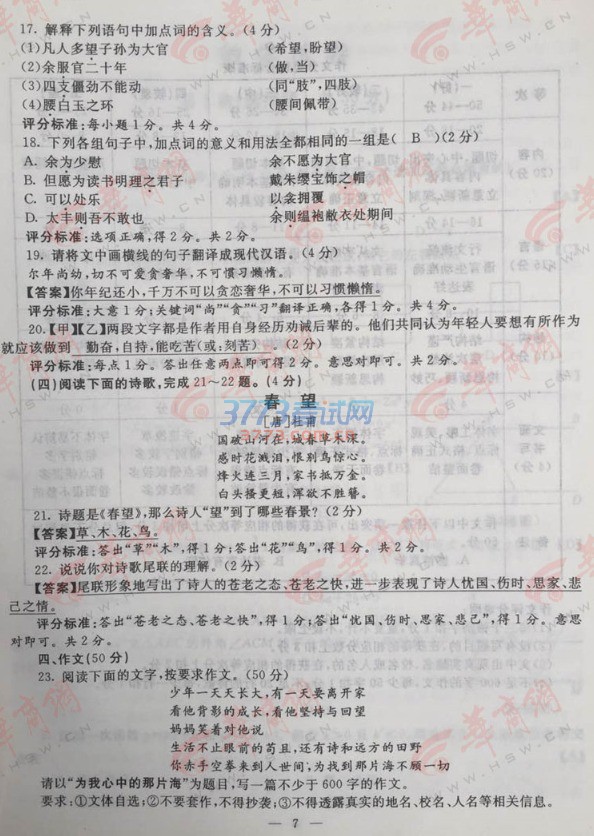 17. 解释下列语句中加点词的含义。(4 分)
(1)凡人多望子孙为大官 (希望,盼望)
(2)余服官二十年 (做,当)
(3)四支僵劲不能动 (同“肢”,四肢)
(4)腰白玉之环 (腰间佩带)
评分标准:每小题 1 分。共 4 分。
18. 下列各组句子中,加点词的意义和用法全都相同的一组是( B )(2 分)
A. 余为少慰 余不愿为大官
B. 但愿为读书明理之君子 戴朱缨宝饰之帽
C. 可以处乐 以衾拥覆
D. 太丰则吾不敢也 余则缊袍敝衣处期间
评分标准:选项正确,得 2 分。共 2 分。
19. 请将文中画横线的句子翻译成现代汉语。(4 分)
尔年尚幼,切不可爱贪奢华,不可惯习懒惰。
【答案】你年纪还小,千万不可以贪恋奢华,不可以习惯懒惰。
评分标准:大意 1 分;关键词“尚”“贪”“习”翻译正确,各得 1 分。共 4 分。
20.【甲】【乙】两段文字都是作者用自身经历劝诫后辈的。他们共同认为年轻人要想有所作为
就应该做到 勤奋,自持,能吃苦(或:刻苦) 。(2 分)
评分标准:每点 1 分。答出任意两点即可得 2 分。意思对即可。共 2 分。
(四)阅读下面的诗歌,完成 21～22 题。(4 分)
春 望
[唐]杜甫
国破山河在,城春草木深。
感时花溅泪,恨别鸟惊心。
烽火连三月,家书抵万金。
白头搔更短,浑欲不胜簪。
21. 诗题是《春望》,那么诗人“望”到了哪些春景?(2 分)
【答案】草、木、花、鸟。
评分标准:答出“草”“木”,得 1 分;答出“花”“鸟”,得 1 分。共 2 分。
22. 说说你对诗歌尾联的理解。(2 分)
【答案】尾联形象地写出了诗人的苍老之态、苍老之快,进一步表现了诗人忧国、伤时、思家、悲
己之情。
评分标准:答出“苍老之态、苍老之快”,得 1 分;答出“忧国、伤时、思家、悲己”,得 1 分。意思
对即可。共 2 分。
四、作文(50 分)
23. 阅读下面的文字,按要求作文。(50 分)
少年一天天长大,有一天要离开家
看他背影的成长,看他坚持与回望
妈妈笑着对他说
生活不止眼前的苟且,还有诗和远方的田野
你赤手空拳来到人世间,为找到那片海不顾一切
请以“为我心中的那片海”为题目,写一篇不少于 600 字的作文。
要求:①文体自选;②不要套作,不得抄袭;③不得透露真实的地名、校名、人名等相关信息。
— 7 —
3773考试网
3773.com
华商网
WWW.HSW.CN